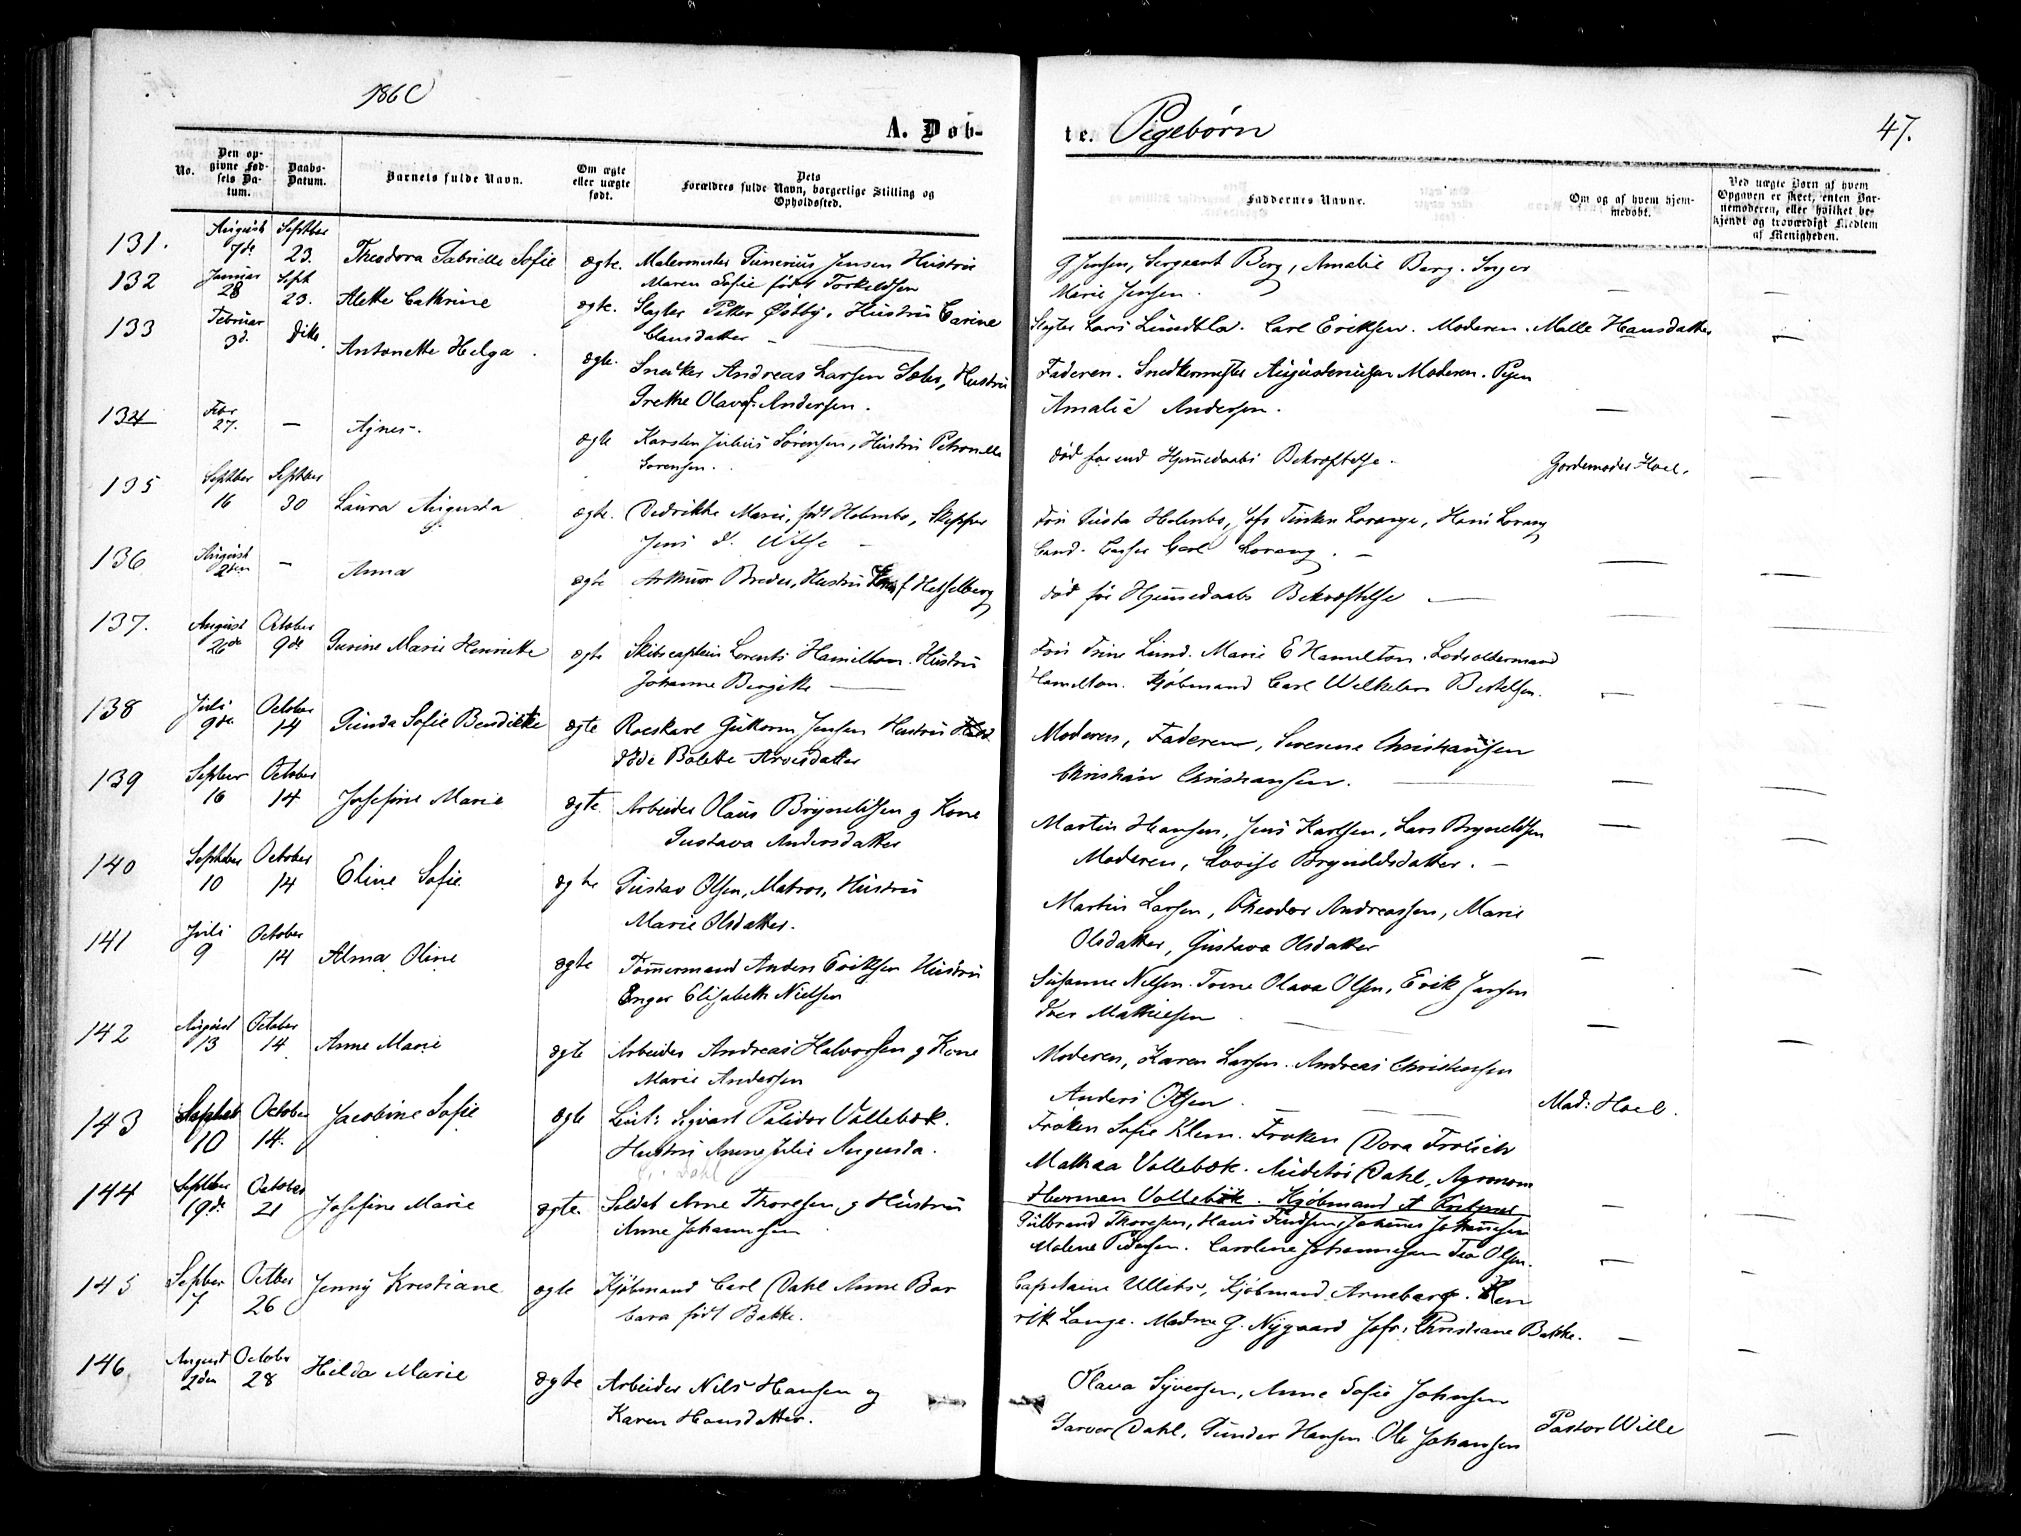 1860
A. Døb-
te. Pigebørn
47.
No.
Den op-
givne Fød-
sels Da-
tum.
Daabs-
Datum.
Barnets fulde Navn.
Om ægte
eller uægte
født.
Dets
Forældres fulde Navn, borgerlige Stilling og
Opholdssted.
Faddernes Navne.
Om og af hvem hjem-
medøbt.
Ved uægte Børn af hvem
Opgaven er skeet, enten Bar-
nemoderen, eller hvilket be-
kjendt og troværdigt Medlem
af Menigheden.
131. August 7de Septber 23. Theodora Gabrielle Sofie ægte. Malermester Gunerius Jensen Hustru
Maren Sofie født Torkeldsen
G Jensen, Sergeant Berg, Amalie Berg. Inger
Marie Jensen. — —
132 Januar 28 Sept 23. Alette Cathrine ægte. Slagter Petter Østby, Hustru Carine
Clausdatter —
Slagter Lars Lundbla. Carl Eriksen. Moderen. Malle Hansdatter —
133 Februar 3d. dito. Antonette Helga. ægte. Snedker Andreas Larsen Sæter, Hustru
Grethe Olava f. Andersen.
Faderen. Snedkermester Augusteniusen Moderen. Pigen
Amalie Andersen. — —
134 Febr 27. — Agnes. ægte Karsten Julius Sørensen, Hustru Petronelle
Sorensen.
død før end Hjemmedaabs Bekræftelse. Gjordemoder Hoel. —
135 Septber 16 Septber 30 Laura Augusta ægte. Dedrikke Marie, født Holmbo, Skipper
Jens J. Wilse —
Frøi Gusta Holmbo, Jofr Tinken Lorange, Hans Lorang
Cand. Carl Lorang. — —
136 August 2den — Anna ægte Arthur Bredes, Hustru f Hesselberg
død før Hjemmedaabs Bekræftelse — —
137. August 20de October 9de Gurine Marie Henriette ægte Skibscaptein Lorents Hamilton. Hustru
Johanne Bergitte —
Trine Lund. Marie E Hamilton. Lodsoldermand
Hamilton. Kjøbmand Carl Wilhelm Bertelsen. — —
138 Juli 9de October 14 Gunda Sofie Bendikte ægte Roeskarl Guttorm Jensen Hustru
Bolette Arvesdatter
Moderen, Faderen, Severine Christiansen
Christian Christiansen. — —
139 Septber 16 October 14 Josefine Marie ægte. Arbeider Olaus Brynildsen og Kone
Gustava Andersdatter
Martin Hansen, Jens Karlsen, Lars Bryneldsen
Moderen, Lovise Bryneldsdatter. — —
140 Septber 10 October 14 Eline Sofie ægte Gustav Olsen, Matros, Hustru
Marie Olsdatter.
Martin Larsen, Theodor Andreassen, Marie
Olsdatter, Gustava Olsdatter —
141 Juli 9 October 14 Alma Oline ægte Tømmermand Anders Eriksen Hustru
Enger Elisabeth Nielsen
Susanne Nilsen. Trine Olava Olsen, Erik Jensen
Iver Mathiesen — —
142 August 13 October 14 Anne Marie ægte Arbeider Andreas Halvorsen og Kone
Marie Andersen
Moderen, Karen Larsen. Andreas Christensen
Anders Olsen. — Mad: Hoel.
143 Septbr 10 October 14. Jacobine Sofie ægte Leut: Sigvart Palidor Vollebæk.
Hustru Anne Julie Augusta.
f: Dahl
Frøken Sofie Klem. Frøken Dora Frolich
Mathea Vollebæk. Auditør Dahl, Agronom
Herman Vollebæk. Kjøbmand A
144 Septber 19de October 21 Josefine Marie ægte. Soldat Arne Thoresen og Hustru
Anne Johannesen
Gulbrand Thoresen, Hans Knudsen, Johannes Johannesen
Malene Pedersen. Caroline Johannesen Tea Olsen. —
145 Septber 7 Octber 26 Jenny Kristiane ægte Kjøbmand Carl Dahl Anne Bar
bara født Bakke.
Capitaine Ullitz, Kjøbmand Arneberg. Hen
rik Lange. Madme G. Nygaard Jofr: Christiane Bakke. —
146 August 2den October 28 Hilda Marie ægte Arbeider Nils Hansen og
Karen Hansdatter.
Olava Syversen, Anne Sofie Johnsen
Sarvor Dahl, Gunder Hansen. Ole Johansen Pastor Wille —